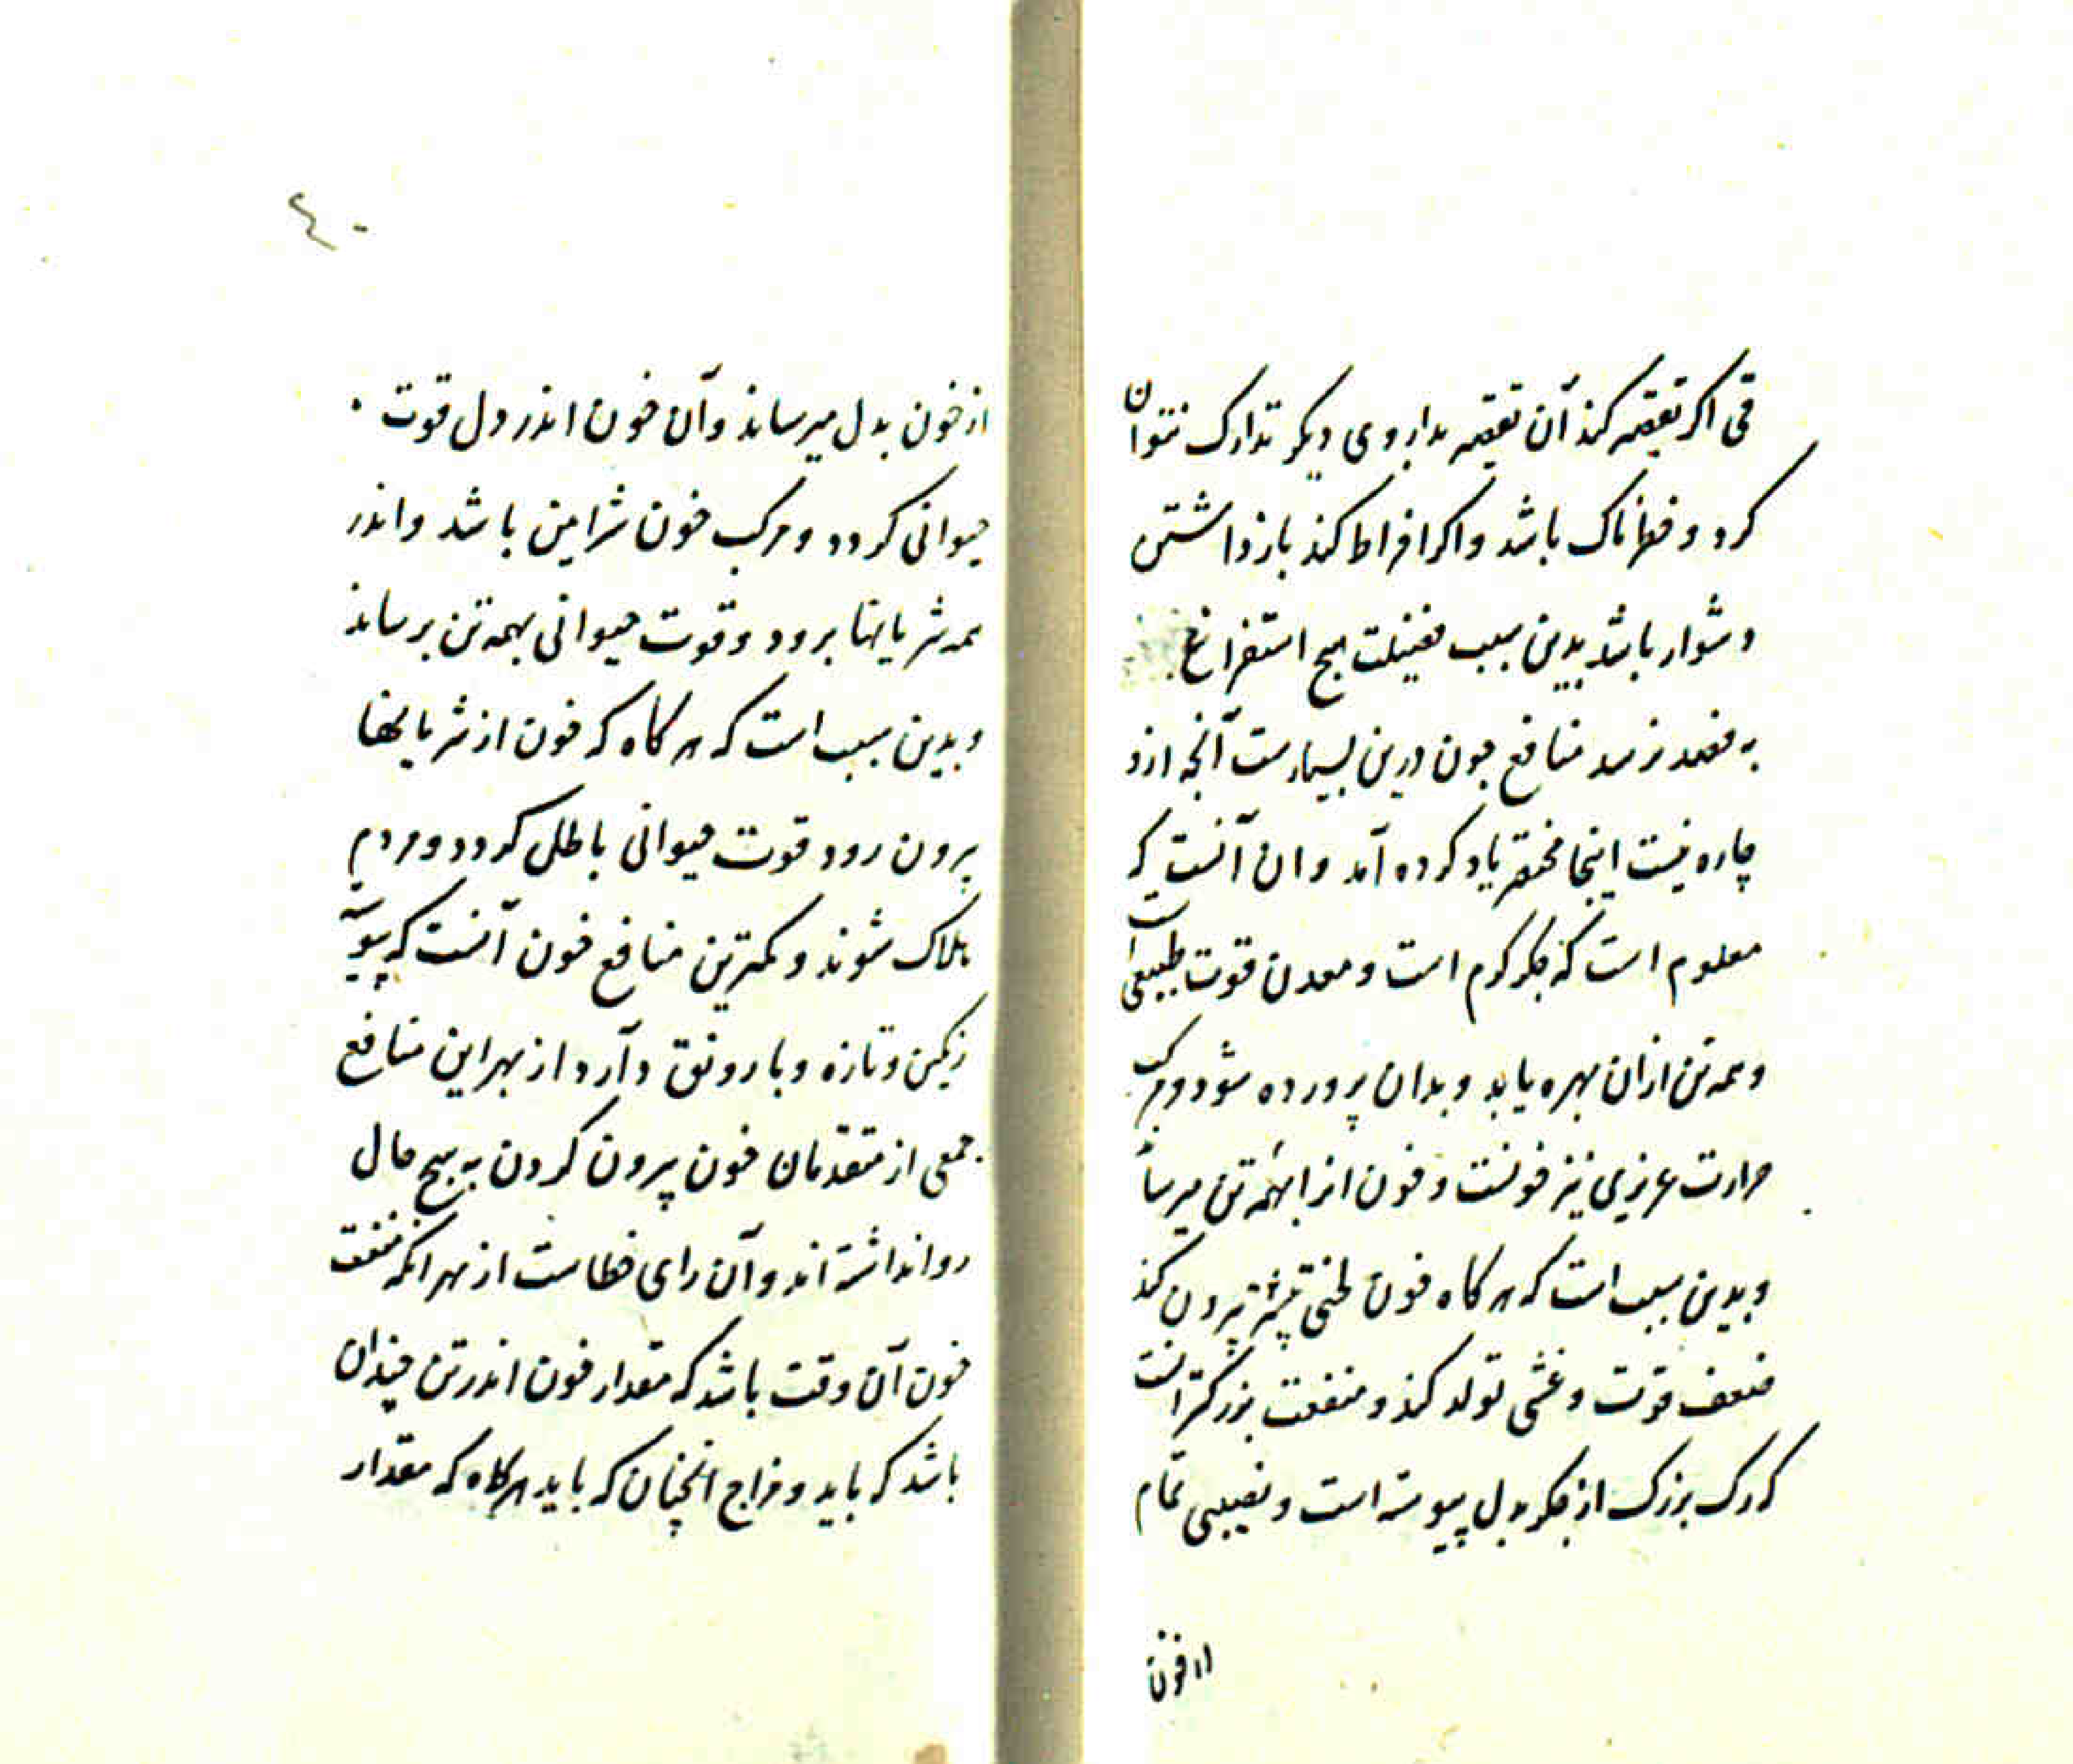 قی اکر تقصیر کند آن تقصیر بداروی دیکر تدارک نتوان
کرد و خطرناک باشد و اکر افراط کند بازداشتن
دشوار باشد بدین سبب فضیلت هیج استفراغ
به فصد نرسد منافع خون درین بسیارست آنچه ازو
چاره نیست اینجا مختصر یاد کرده آمد و ان آنست که
معلوم است که جکر کرم است و معدن قوت طبیعی است
و همه تن ازان بهره یابد و بدان پرورده شود و مرکب
حرارت عریزی نیز خونست و خون انرا بهمه تن میرسا
و بدین سبب است که هرکاه خون لختی بیشتر بیرون کند
ضعف قوت و غشی تولد کند و منفعت بزرکتر انست
که رک بزرک از جکر بدل پیوسته است و نصیبی تمام
از خون
٤٠
از خون بدل میرساند و آن خون اندر دل قوت
حیوانی کردد و مرکب خون شرایین باشد و اندر
همه شریانها برود و قوت حیوانی بهمه تن برساند
و بدین سبب است که هرکاه که خون از شریانها
بیرون رود قوت حیوانی باطل کردد و مردم
هلاک شوند و کمترین منافع خون آنست که پیوسته
رنکین و تازه و با رونق دارد از بهر این منافع
جمعی از متقدمان خون بیرون کردن به هیچ حال
روا نداشته اند و آن رای خطاست از بهر انکه منفعت
خون آن وقت باشد که مقدار خون اندر تن چندان
باشد که باید و مزاج انچنان که باید هرکاه که مقدار